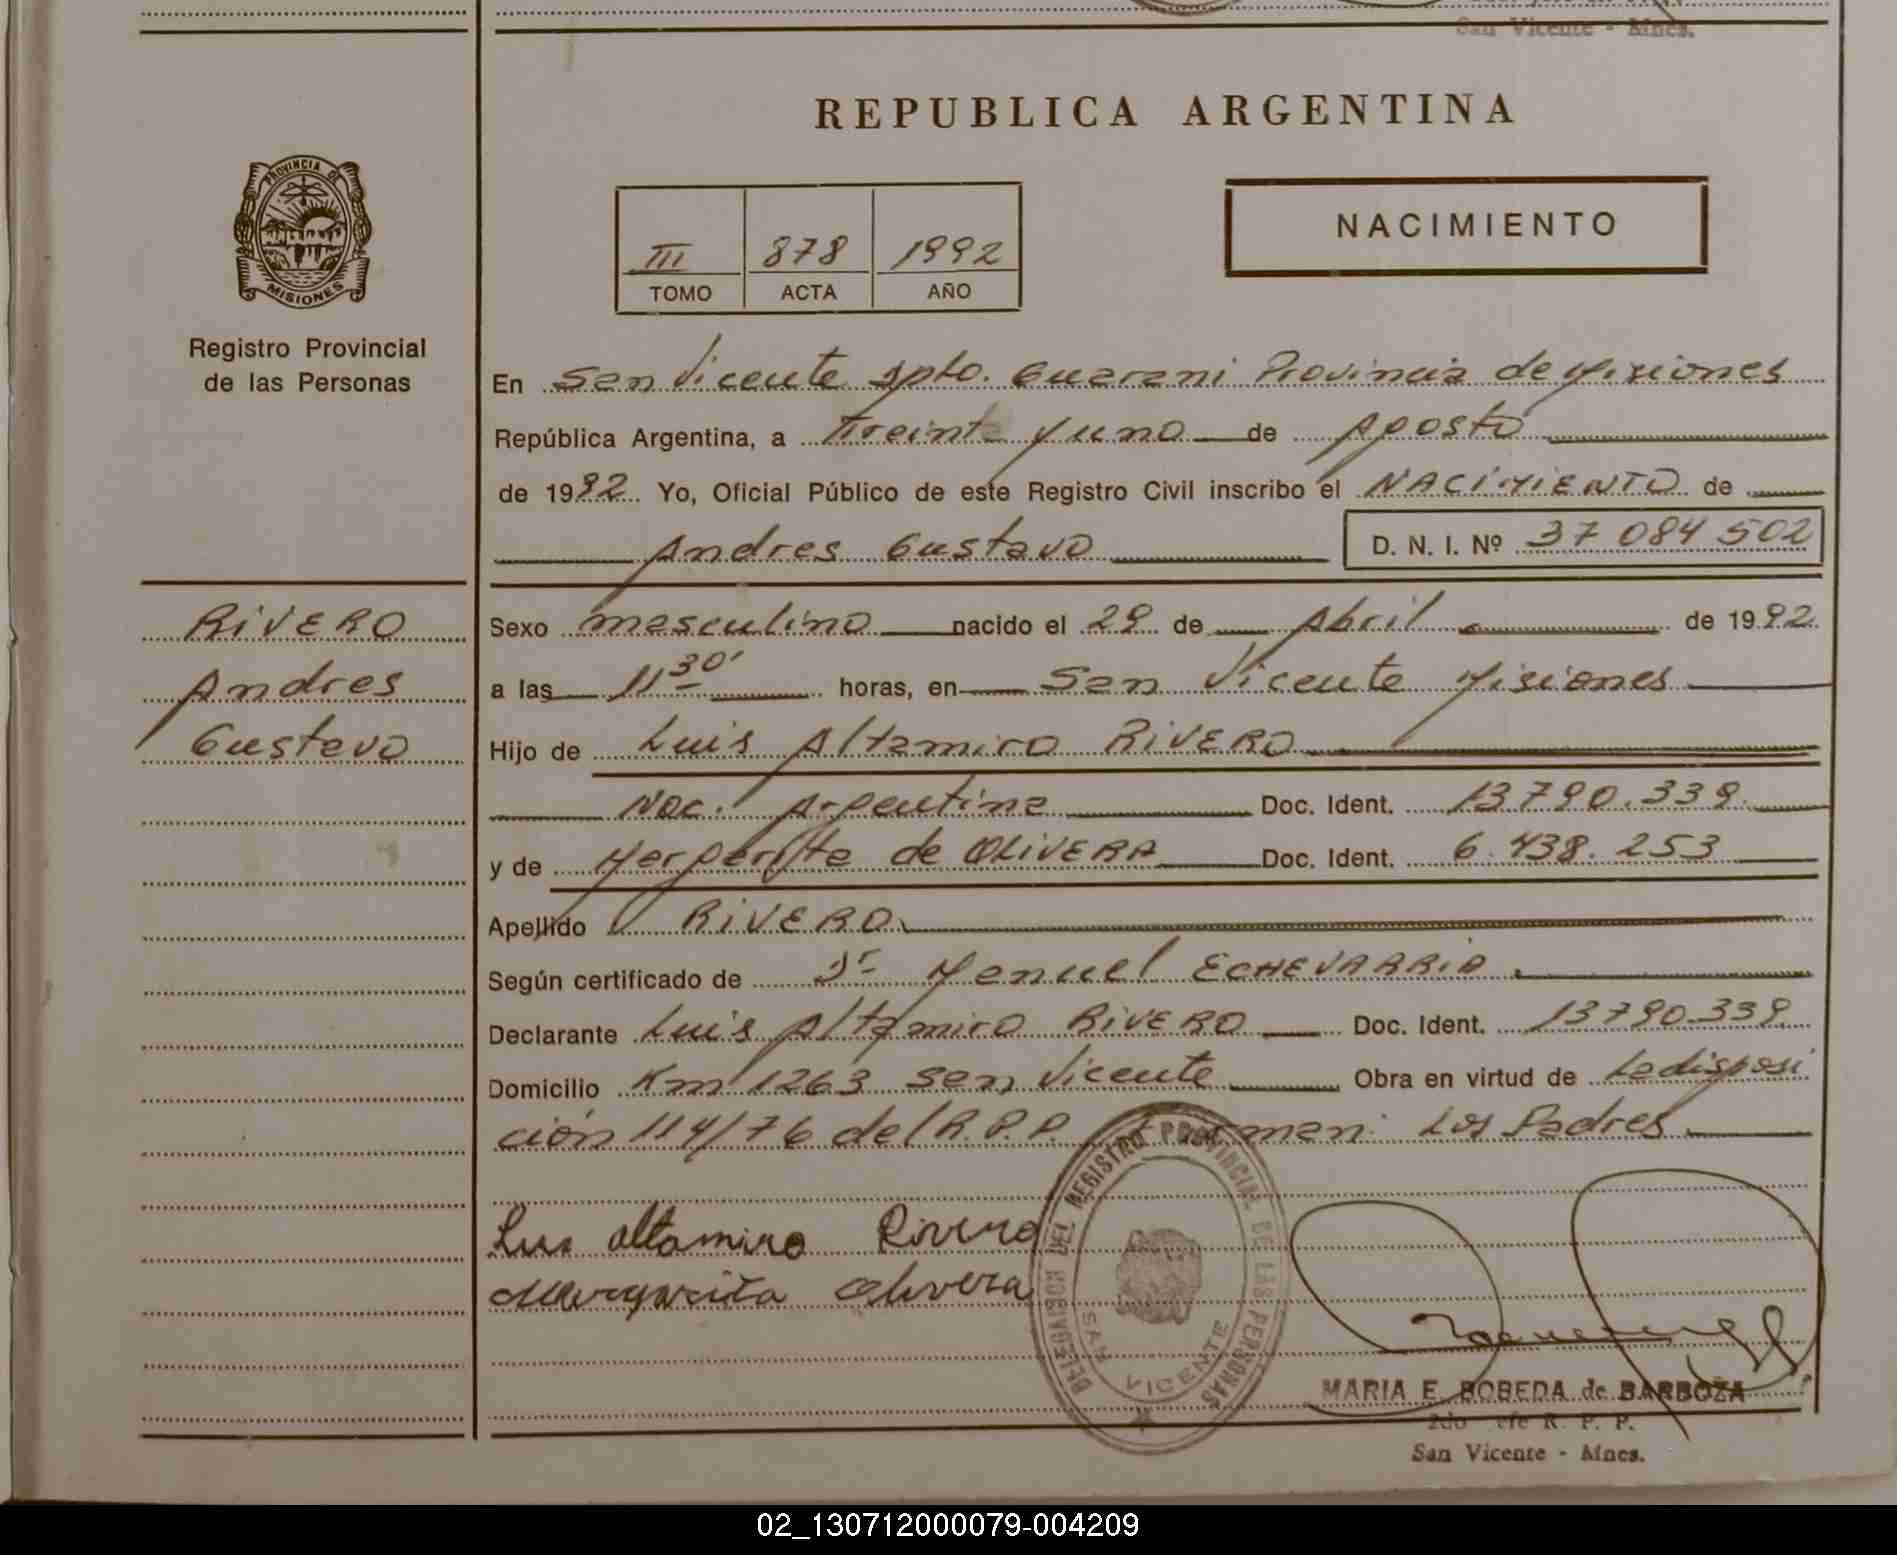 San Vicente - Mnes.
REPUBLICA ARGENTINA
PROVINCIA DE
MISIONES
Registro Provincial
de las Personas
III 878 1992
TOMO ACTA AÑO
NACIMIENTO
En San Vicente Dpto. Guarani Provincia de Misiones
República Argentina, a Treinta y uno de Agosto
de 1992 Yo, Oficial Público de este Registro Civil inscribo el NACIMIENTO de
Andres Gustavo D. N. I. Nº 37 084 502
RIVERO
Andres
Gustavo
Sexo masculino nacido el 29 de Abril de 1992
a las 11 30' horas, en San Vicente Misiones
Hijo de Luis Altamiro RIVERO
Nac. Argentina Doc. Ident. 13790.339
y de Margarita de OLIVERA Doc. Ident. 6.438.253
Apellido RIVERO
Según certificado de Dr Manuel ECHEVARRIA
Declarante Luis Altamiro RIVERO Doc. Ident. 13790.339
Domicilio Km 1263 San Vicente Obra en virtud de La disposi
ción 114/76 del R.P.P. Firman: Los Padres
Luis altamiro Rivero
Margarita Olivera
DELEGACION DEL REGISTRO PROVINCIAL DE LAS PERSONAS
SAN VICENTE
MARIA E. BOBEDA de BARBOZA
2do efe R. P. P.
San Vicente - Mnes.
02_130712000079-004209